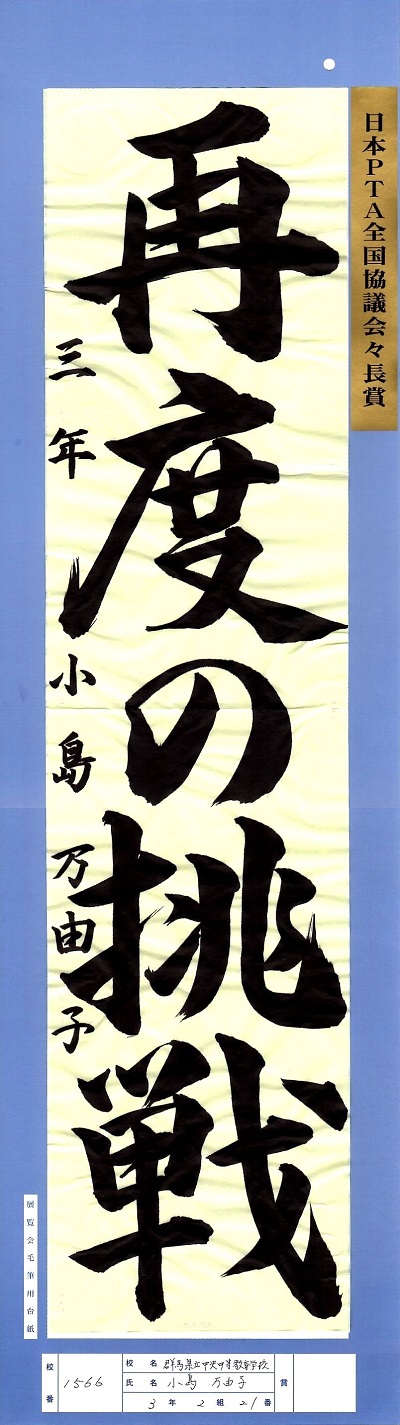 日本PTA全国協議会々長賞
再度の挑戦
三年 小島 万由子
展覧会毛筆用台紙
校番 1566
校名 群馬県立中央中等教育学校
氏名 小島 万由子
3年 2組 21番
賞